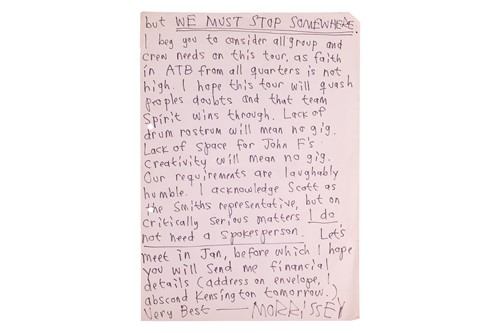 but WE MUST STOP SOMEWHERE
I beg you to consider all group and
crew needs on this tour, as faith
in ATB from all quarters is not
high. I hope this tour will quash
peoples doubts and that team
Spirit wins through. Lack of
drum rostrum will mean no gig.
Lack of space for John F's
creativity will mean no gig.
Our requirements are laughably
humble. I acknowledge Scott as
the Smiths representative, but on
critically serious matters I do
not need a spokesperson. Lets
meet in Jan, before which I hope
you will send me financial
details (address on envelope, I
abscond Kensington tomorrow.)
Very Best — MORRISSEY